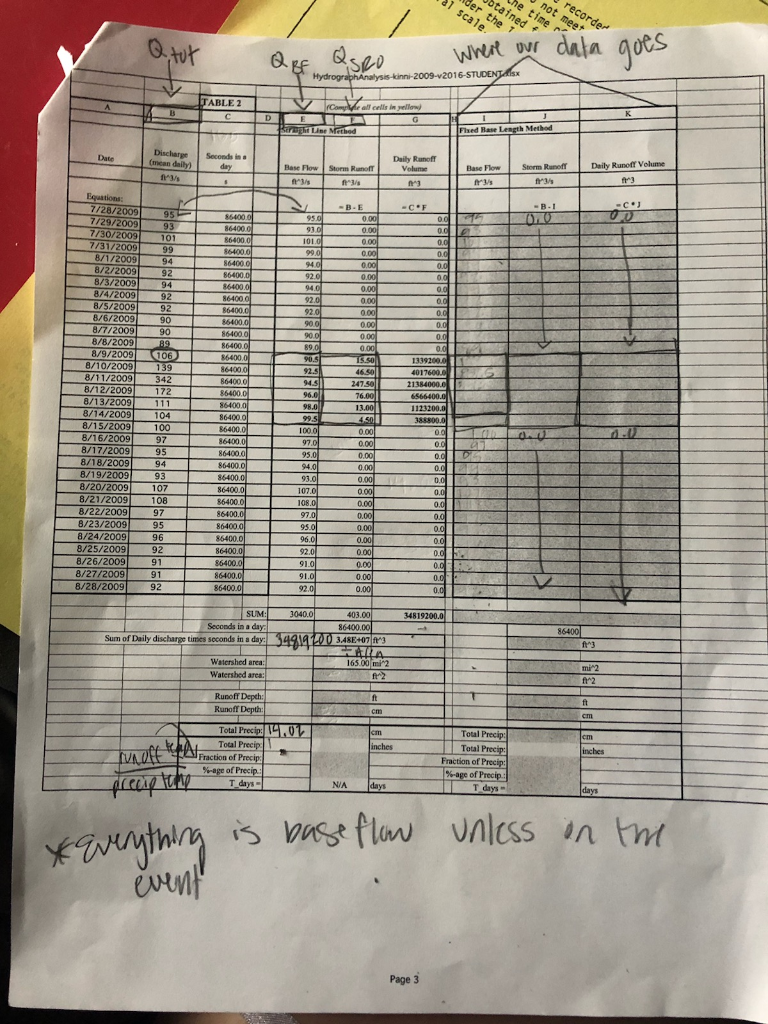 recorded
not meet
the time
obtained
under the
al scale.
Q tot
Q BF
Q SRO
where our data goes
HydrographAnalysis-kinni-2009-v2016-STUDENT.xlsx
TABLE 2 (Complete all cells in yellow)
A B C D E F G H I J K
Straight Line Method Fixed Base Length Method
Date Discharge (mean daily) Seconds in a day Base Flow Storm Runoff Daily Runoff Volume Base Flow Storm Runoff Daily Runoff Volume
ft^3/s s ft^3/s ft^3/s ft^3 ft^3/s ft^3/s ft^3
Equations: =B-E =C*F =B-I =C*J
7/28/2009 95 86400.0 95.0 0.00 0.0 0.0 0.0
7/29/2009 93 86400.0 93.0 0.00 0.0
7/30/2009 101 86400.0 101.0 0.00 0.0
7/31/2009 99 86400.0 99.0 0.00 0.0
8/1/2009 94 86400.0 94.0 0.00 0.0
8/2/2009 92 86400.0 92.0 0.00 0.0
8/3/2009 94 86400.0 94.0 0.00 0.0
8/4/2009 92 86400.0 92.0 0.00 0.0
8/5/2009 92 86400.0 92.0 0.00 0.0
8/6/2009 90 86400.0 90.0 0.00 0.0
8/7/2009 90 86400.0 90.0 0.00 0.0
8/8/2009 89 86400.0 89.0 0.00 0.0
8/9/2009 106 86400.0 90.5 15.50 1339200.0
8/10/2009 139 86400.0 92.5 46.50 4017600.0
8/11/2009 342 86400.0 94.5 247.50 21384000.0
8/12/2009 172 86400.0 96.0 76.00 6566400.0
8/13/2009 111 86400.0 98.0 13.00 1123200.0
8/14/2009 104 86400.0 99.5 4.50 388800.0
8/15/2009 100 86400.0 100.0 0.00 0.0 0.0 0.0
8/16/2009 97 86400.0 97.0 0.00 0.0
8/17/2009 95 86400.0 95.0 0.00 0.0
8/18/2009 94 86400.0 94.0 0.00 0.0
8/19/2009 93 86400.0 93.0 0.00 0.0
8/20/2009 107 86400.0 107.0 0.00 0.0
8/21/2009 108 86400.0 108.0 0.00 0.0
8/22/2009 97 86400.0 97.0 0.00 0.0
8/23/2009 95 86400.0 95.0 0.00 0.0
8/24/2009 96 86400.0 96.0 0.00 0.0
8/25/2009 92 86400.0 92.0 0.00 0.0
8/26/2009 91 86400.0 91.0 0.00 0.0
8/27/2009 91 86400.0 91.0 0.00 0.0
8/28/2009 92 86400.0 92.0 0.00 0.0
SUM: 3040.0 403.00 34819200.0
Seconds in a day: 86400.00 86400
Sum of Daily discharge times seconds in a day: 34819200 3.48E+07 ft^3 ft^3
Watershed area: 165.00 mi^2 mi^2
Watershed area: ft^2 ft^2
Runoff Depth: ft ft
Runoff Depth: cm cm
Total Precip: 14.02 cm Total Precip: cm
Total Precip: inches Total Precip: inches
Fraction of Precip: Fraction of Precip:
%-age of Precip.: %-age of Precip.:
T_days = N/A days T_days = days
runoff
precip
*Everything is baseflow unless in the
event
Page 3